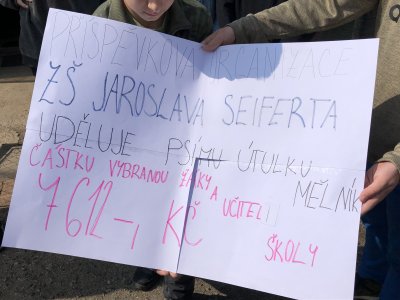 PŘÍSPĚVKOVÁ ORGANIZACE
ZŠ JAROSLAVA SEIFERTA
UDĚLUJE PSÍMU ÚTULKU MĚLNÍK
ČÁSTKU VYBRANOU ŽÁKY A UČITELI ŠKOLY
7612-, KČ